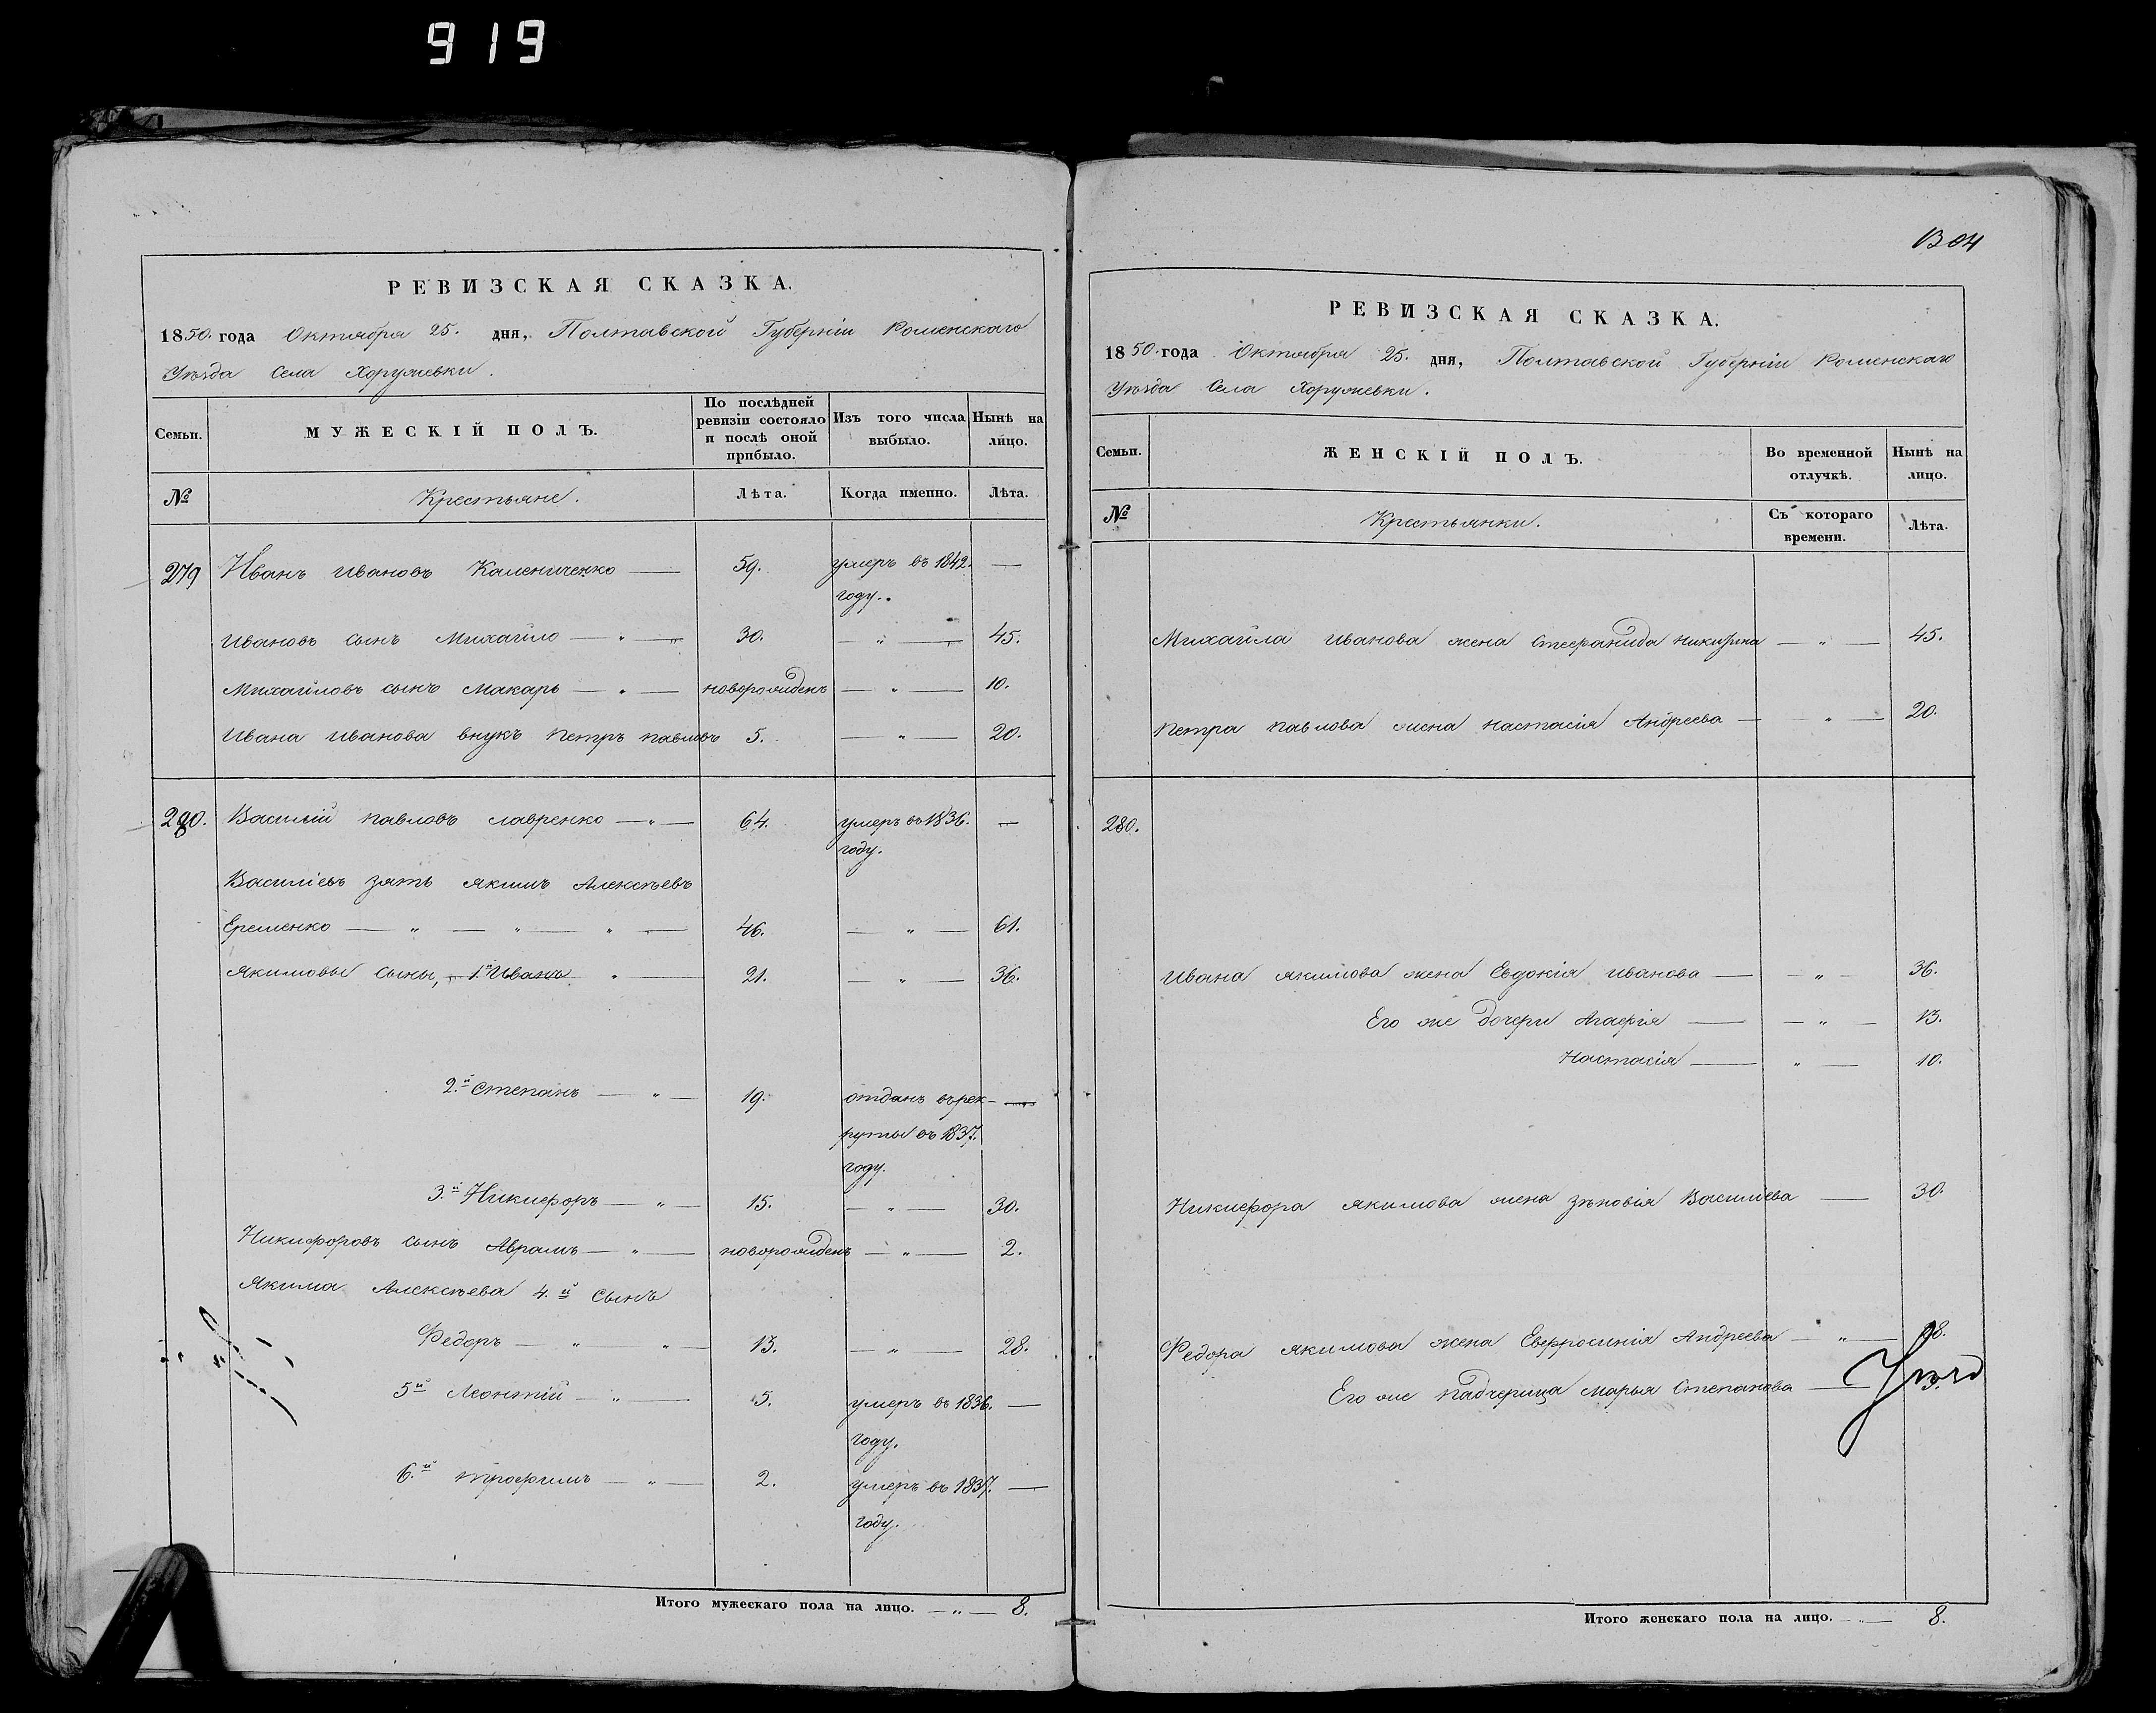 919
РЕВИЗСКАЯ СКАЗКА.
1850. года Октября 25. дня, Полтавской Губерніи Роменскаго
Уѣзда Села Хоружевки.
Семьи.
МУЖЕСКІЙ ПОЛЪ.
По послѣдней ревизіи состояло и послѣ оной прибыло.
Изъ того числа выбыло.
Нынѣ на лицо.
№
Крестьяне.
Лѣта.
Когда именно.
Лѣта.
279 Иванъ Ивановъ Калениченко — 59. умеръ въ 1842. —
году.
Ивановъ сынъ Михайло — „ — 30. — „ — 45.
Михайловъ сынъ Макаръ — „ — новорожденъ — „ — 10.
Ивана Иванова внукъ Петръ Павловъ 5. — „ — 20.
280. Василій Павловъ Лавренко — „ — 64. умеръ въ 1836. —
году.
Василіевъ зять Якимъ Алексѣевъ
Еременко — „ — „ — „ — 46. — „ — 61.
Якимовы сыны, 1й Иванъ „ — 21. — „ — 36.
2.й Степанъ — „ — 19. отданъ въ рек- —
руты въ 1837.
году.
3.й Никифоръ — „ — 15. — „ — 30.
Никифоровъ сынъ Аврамъ — „ — новорожденъ — „ — 2.
Якима Алексѣева 4.й сынъ
Федоръ — „ — „ — 13. — „ — 28.
5й Леонтій — „ — 5. умеръ въ 1836. —
году.
6.й Трофимъ — „ — 2. умеръ въ 1837. —
году.
Итого мужескаго пола на лицо. — „ — 8.
1304
РЕВИЗСКАЯ СКАЗКА.
1850. года Октября 25. дня, Полтавской Губерніи Роменскаго
Уѣзда Села Хоружевки.
Семьи.
ЖЕНСКІЙ ПОЛЪ.
Во временной отлучкѣ.
Нынѣ на лицо.
№
Крестьянки.
Съ котораго времени.
Лѣта.
Михайла Иванова жена Стефанида Никитина — „ — 45.
Петра Павлова жена Настасія Андреева — „ — 20.
280.
Ивана Якимова жена Евдокія Иванова — — „ — 36.
Его же дочери Агафія — — „ — 13.
Настасія — „ — 10.
Никифора Якимова жена Зѣновія Василіева — 30.
Федора Якимова жена Евфросинія Андреева — „ — 28.
Его же падчерица Марья Степанова — 3.
Итого женскаго пола на лицо. — „ — 8.